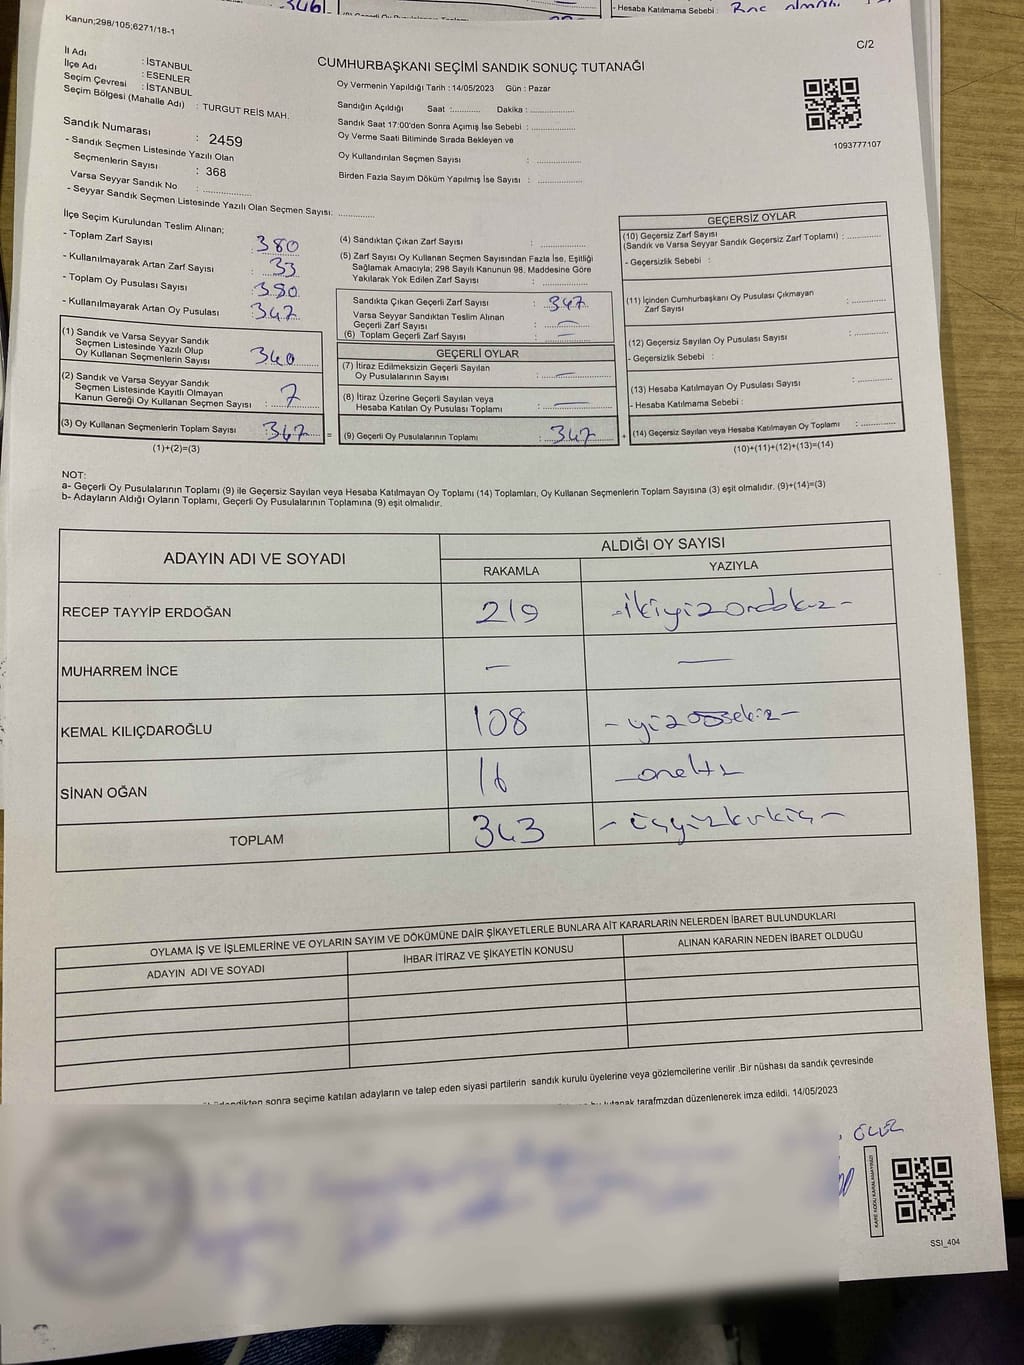 - Hesaba Katılmama Sebebi :
Kanun;298/105;6271/18-1
C/2
İl Adı : İSTANBUL
İlçe Adı : ESENLER
Seçim Çevresi : İSTANBUL
Seçim Bölgesi (Mahalle Adı) : TURGUT REİS MAH.
CUMHURBAŞKANI SEÇİMİ SANDIK SONUÇ TUTANAĞI
Oy Vermenin Yapıldığı Tarih : 14/05/2023 Gün : Pazar
Sandığın Açıldığı Saat :............ Dakika :................
Sandık Saat 17:00'den Sonra Açımış İse Sebebi :................
Oy Verme Saati Bitiminde Sırada Bekleyen ve
Oy Kullandırılan Seçmen Sayısı :................
Birden Fazla Sayım Döküm Yapılmış İse Sayısı :................
1093777107
Sandık Numarası : 2459
- Sandık Seçmen Listesinde Yazılı Olan
Seçmenlerin Sayısı : 368
Varsa Seyyar Sandık No :................
- Seyyar Sandık Seçmen Listesinde Yazılı Olan Seçmen Sayısı: .............
İlçe Seçim Kurulundan Teslim Alınan;
- Toplam Zarf Sayısı : 380
- Kullanılmayarak Artan Zarf Sayısı : 33
- Toplam Oy Pusulası Sayısı : 380
- Kullanılmayarak Artan Oy Pusulası : 347
(1) Sandık ve Varsa Seyyar Sandık
Seçmen Listesinde Yazılı Olup
Oy Kullanan Seçmenlerin Sayısı : 340
(2) Sandık ve Varsa Seyyar Sandık
Seçmen Listesinde Kayıtlı Olmayan
Kanun Gereği Oy Kullanan Seçmen Sayısı : 7
(3) Oy Kullanan Seçmenlerin Toplam Sayısı : 347
(1)+(2)=(3)
(4) Sandıktan Çıkan Zarf Sayısı :................
(5) Zarf Sayısı Oy Kullanan Seçmen Sayısından Fazla İse, Eşitliği
Sağlamak Amacıyla; 298 Sayılı Kanunun 98. Maddesine Göre
Yakılarak Yok Edilen Zarf Sayısı :................
Sandıkta Çıkan Geçerli Zarf Sayısı : 347
Varsa Seyyar Sandıktan Teslim Alınan
Geçerli Zarf Sayısı : —
(6) Toplam Geçerli Zarf Sayısı : —
GEÇERLİ OYLAR
(7) İtiraz Edilmeksizin Geçerli Sayılan
Oy Pusulalarının Sayısı : —
(8) İtiraz Üzerine Geçerli Sayılan veya
Hesaba Katılan Oy Pusulası Toplamı : —
= (9) Geçerli Oy Pusulalarının Toplamı : 347 +
GEÇERSİZ OYLAR
(10) Geçersiz Zarf Sayısı
(Sandık ve Varsa Seyyar Sandık Geçersiz Zarf Toplamı) :............
- Geçersizlik Sebebi :
(11) İçinden Cumhurbaşkanı Oy Pusulası Çıkmayan
Zarf Sayısı :............
(12) Geçersiz Sayılan Oy Pusulası Sayısı :............
- Geçersizlik Sebebi :
(13) Hesaba Katılmayan Oy Pusulası Sayısı :............
- Hesaba Katılmama Sebebi :
(14) Geçersiz Sayılan veya Hesaba Katılmayan Oy Toplamı :............
(10)+(11)+(12)+(13)=(14)
NOT:
a- Geçerli Oy Pusulalarının Toplamı (9) ile Geçersiz Sayılan veya Hesaba Katılmayan Oy Toplamı (14) Toplamları, Oy Kullanan Seçmenlerin Toplam Sayısına (3) eşit olmalıdır. (9)+(14)=(3)
b- Adayların Aldığı Oyların Toplamı, Geçerli Oy Pusulalarının Toplamına (9) eşit olmalıdır.
ADAYIN ADI VE SOYADI
ALDIĞI OY SAYISI
RAKAMLA YAZIYLA
RECEP TAYYİP ERDOĞAN 219 -ikiyüzondokuz-
MUHARREM İNCE — —
KEMAL KILIÇDAROĞLU 108 -yüzsekiz-
SİNAN OĞAN 16 -onaltı
TOPLAM 343 -üçyüzkırküç-
OYLAMA İŞ VE İŞLEMLERİNE VE OYLARIN SAYIM VE DÖKÜMÜNE DAİR ŞİKAYETLERLE BUNLARA AİT KARARLARIN NELERDEN İBARET BULUNDUKLARI
ADAYIN ADI VE SOYADI İHBAR İTİRAZ VE ŞİKAYETİN KONUSU ALINAN KARARIN NEDEN İBARET OLDUĞU
sonra seçime katılan adayların ve talep eden siyasi partilerin sandık kurulu üyelerine veya gözlemcilerine verilir .Bir nüshası da sandık çevresinde
tutanak tarafmzdan düzenlenerek imza edildi. 14/05/2023
SSI_404